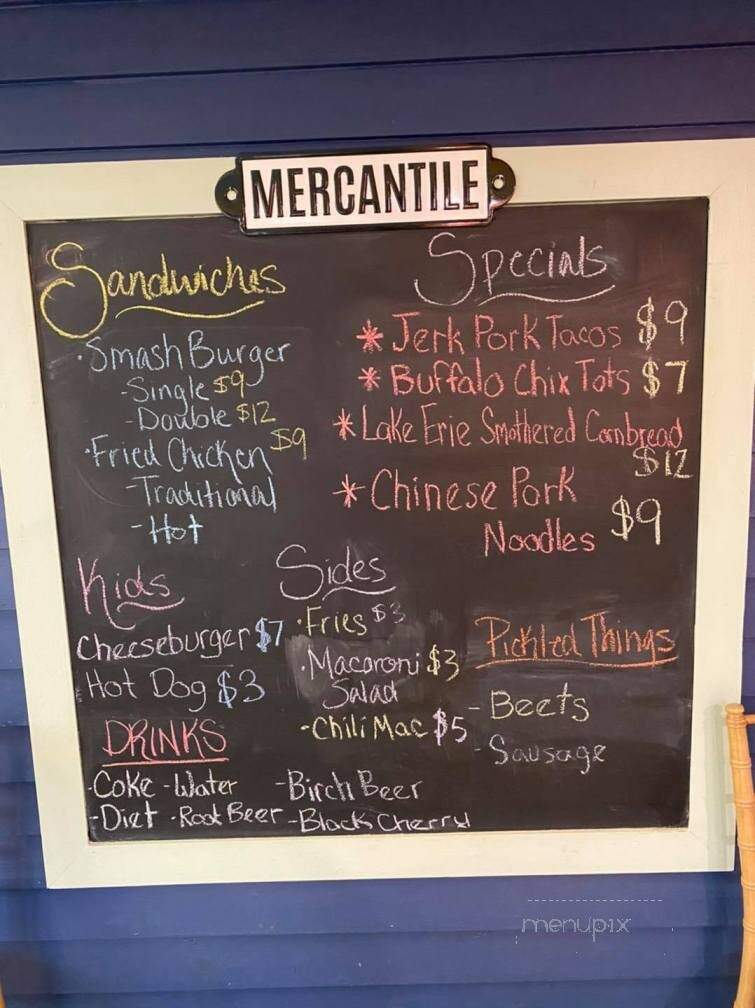 MERCANTILE
Sandwiches
·Smash Burger
-Single $9
-Double $12
·Fried Chicken $9
-Traditional
-Hot
Specials
* Jerk Pork Tacos $9
* Buffalo Chix Tots $7
* Lake Erie Smothered Cornbread
$12
* Chinese Pork
Noodles $9
Kids
Cheeseburger $7
Hot Dog $3
Sides
·Fries $3
·Macaroni $3
Salad
-Chili Mac $5
Pickled Things
- Beets
- Sausage
DRINKS
-Coke -Water -Birch Beer
-Diet -Root Beer -Black Cherry
menupix